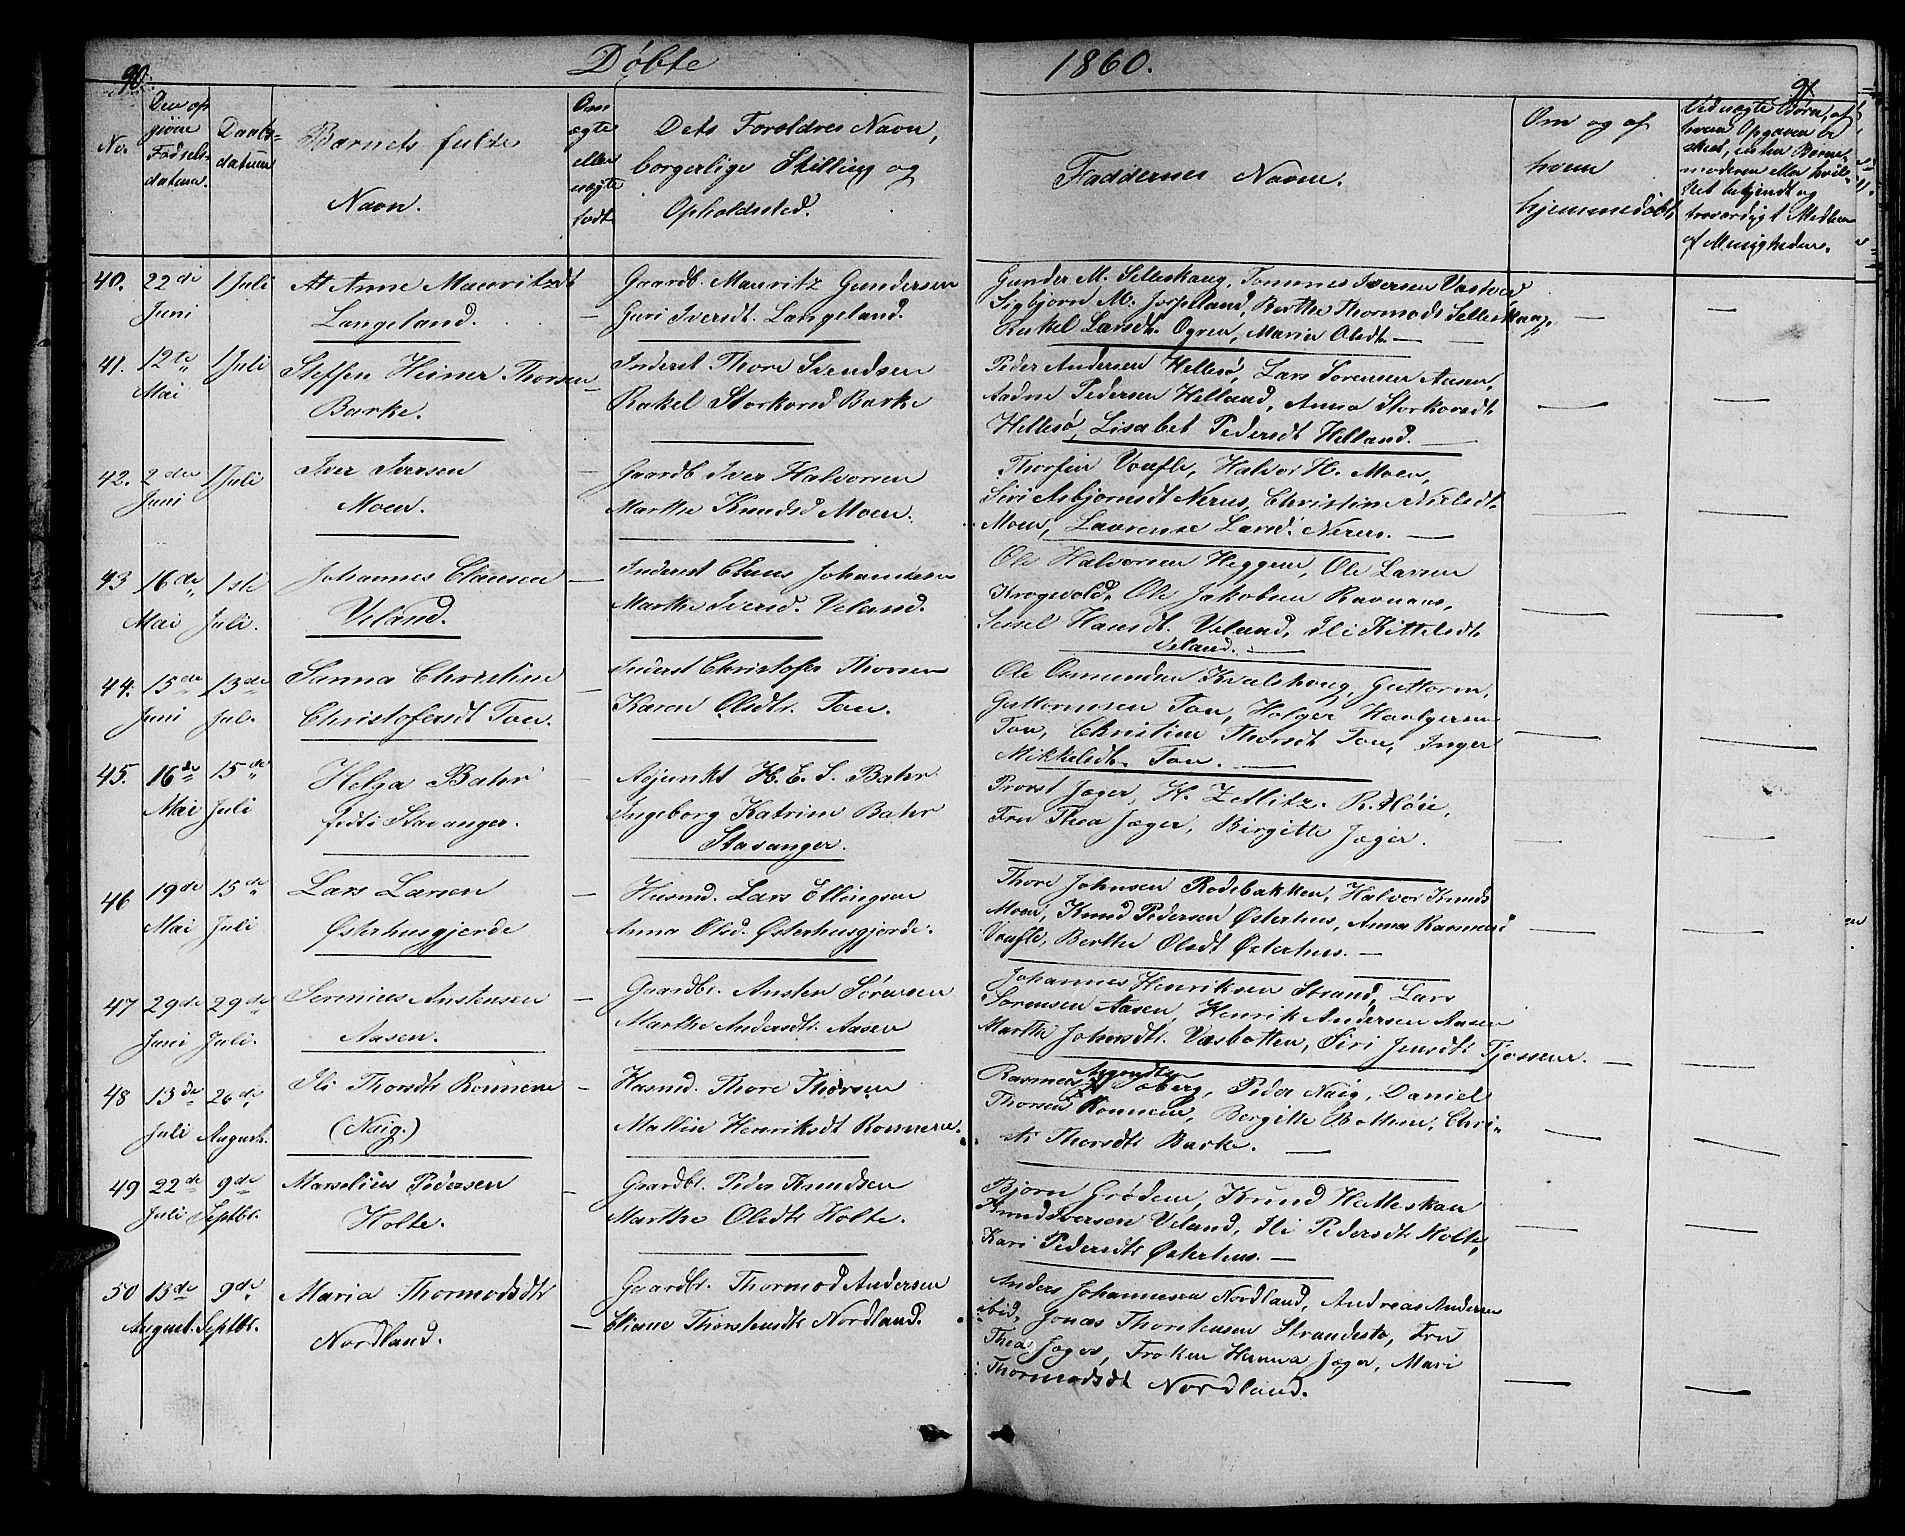 90. Døbte 1860. 91
No. Den op givne Fødselsdatum. Daabsdatum Barnets fulde Navn. Om ægte eller uægte født Dets Foroldres Navn, borgerlige Stilling og Opholdsted. Faddernes Navne. Om og af hvem hjemmedøbt, Ved uægte Børn, af hvem Opgaven be
40. 22de Juni 1 Juli At Anne Mauritzdt Langeland. — Gaardb. Mauritz Gundersen
Guri Iversdt. Langeland.
Gunder M. Selleskaug, Tommes Iversen Vastved
Sigbjørn M. Jørpeland, Berthe Thormods Selleskaug,
Rakel Larsdt. Ogren, Maria Olsdt. —
41. 12te Mai 1 Juli Steffen Heiner Thorsen Barke. — Inderst Thore Svendsen
Rakel Storkorsd Barke
Peder Andersen Hellesø, Lars Sorensen Aasen,
Aadne Pedersen Helland, Anna Storkorsdt.
Hellesø, Lisabet Pedersdt Helland. —
42. 2den Juni 1 Juli Iver Iversen Moen. — Gaardb Iver Halvorsen
Marthe Knudsd Moen.
Thorfin Voufle, Halvor H. Moen,
Siri Asbjornsdt Nerus, Christine Nielsdt.
Moen, Laurense Larsd. Nerus. —
43 16de Mai 1ste Juli. Johannes Clausen Veland. — Inderst Claus Johannesen
Marthe Iversd. Veland.
Ole Halvorsen Heggem, Ole Larsen
Krogevold, Ole Jakobsen Ravnaas,
Sessel Hansdt. Veland, Ili Kittelsdt.
Veland. —
44. 15de Juni 13de Jul. Sanna Christine Christofersdt Tou. — Inderst Christofer Thorsen
Karen Olsdt. Tou.
Ole Osmundsen Kvalshoug, Guttorm
Guttormsen Tou, Holger Haolgersen
Tou, Christine Thorsdt Tou, Inger
Mikkelsdt. Tou. —
45. 16de Mai 15de Juli Helga Bahr født i Stavanger. — Adjunkt H. E. S. Bahr
Ingeborg Katrine Bahr
Stavanger.
Provst Jæger, H. Zetlitz. R. Høie,
Fru Thea Jæger, Birgitte Jæger.
46 19de Mai 15de Juli Lars Larsen Østerhusgjerde — Husmd. Lars Ellingsen
Anna Olsd. Østerhusgjerde.
Thore Johnsen Rodebakken, Halvor Knuds
Moen, Knud Pedersen Østerhus, Anna Rasmusd
Voufle, Berthe Olsdt Østerhus. —
47 29de Juni 29de Juli. Serenius Austensen Aasen. — Gaardbr. Austen Sörensen
Marthe Andersdt. Aasen
Johannes Henriksen Strand, Lars
Sorensen Aasen, Henrik Andersen Aasen
Marthe Johnsdt. Vasbotten, Siri Jensdt. Tjossem. —
48 13de Juli 26de August. Ili Thorsdt. Ronnene (Naig.) — Husmd. Thore Thorsen
Mallin Henriksdt Ronnene.
Rasmus Aagundsen Soberg, Peder Naig, Daniel
Thorsen Ronnene, Bergitte Bottne, Chri-
sti Thorsdt. Barke. —
49 22de Juli 9de Septbr. Marselius Pedersen Holte. — Gaardbr. Peder Knudsen
Marthe Olsdt. Holte.
Bjørn Grødem, Knud Hetleskau
Knud Iversen Veland, Ili Pedersdt. Holte,
Kari Pedersdt. Østerhus. —
50 13de August. 9de Septbr. Maria Thormodsdt. Nordland. — Gaardbr. Thormod Andersen
Eliane Thorstensdt. Nordland.
Anders Johannesen Nordland, Andreas Andersen
ibid, Jonas Thorstensen Strandestø, Fru
Thea Jæger, Frøken Hanna Jæger, Mari
Thormodsdt Nordland.